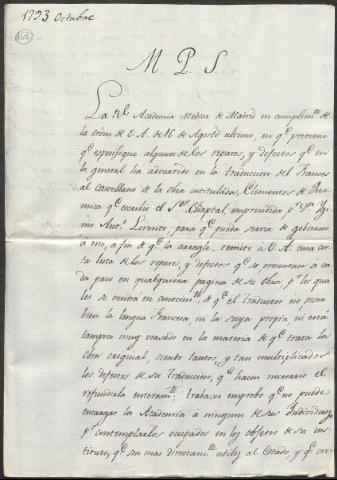 1793 Octubre
168
M. P. S.
La Rl. Academia Medica de Madrid en cumplimto. de
la orden de V. A. de 16 de Agosto ultimo, en qe. previene
qe. especifique algunos de los reparos, y defectos qe. en
lo general ha advertido en la traduccion del Frances
al Castellano de la obra intitulada, Elementos de Chi-
mica qe. escribio el Sor. Chaptal, emprendida pr. Dn. Hygi-
nio Anto. Lorente, para qe. pueda servir de gobierno
a este, a fin de qe. la arregle, remite a V. A. una cor-
ta lista de los reparos, y defectos qe. se presentan a ca-
da paso en qualquiera pagina de su Obra, pr. los qua
les se vendrá en conocimto. de qe. el traductor no posee
bien la lengua Francesa, ni la suya propia, ni está
tampoco muy versado en la materia de qe. trata la
obra original, siendo tantos, y tan multiplicados
los defectos de su Traduccion, qe. hacen necesario el
refundirla enteramte.: trabajo improbo qe. no puede
encargar la Academia á ninguno de sus Individuos
pr. contemplarlos ocupados en los objetos de su ins-
tituto, qe. son mas directamte. utiles al Estado, y qe. cre-